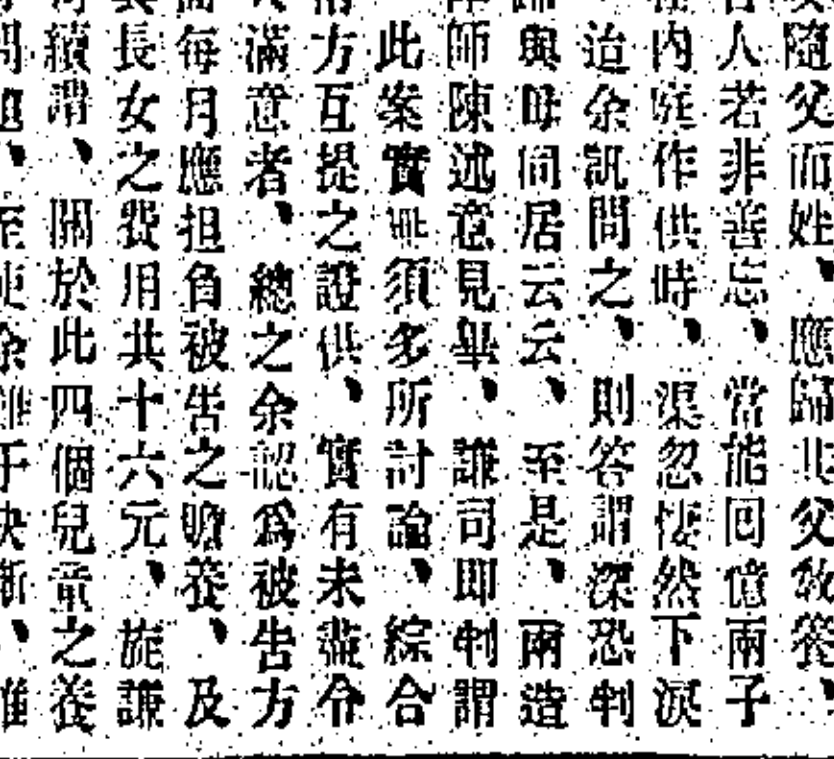 隨父而姓、應歸其父敎養、
人若非善忘、當能回億兩子
內庭作供時、渠忽悽然下淚
迨余訊問之、則答謂深恐判
與母同居云云、至是、兩造
師陳述意見畢、謙司即判謂
此案實無須多所討論、綜合
方互提之證供、實有未盡令
滿意者、總之余認爲被告方
每月應担負被告之贍養、及
長女之費用共十六元、旋謙
續謂、關於此四個兒童之養